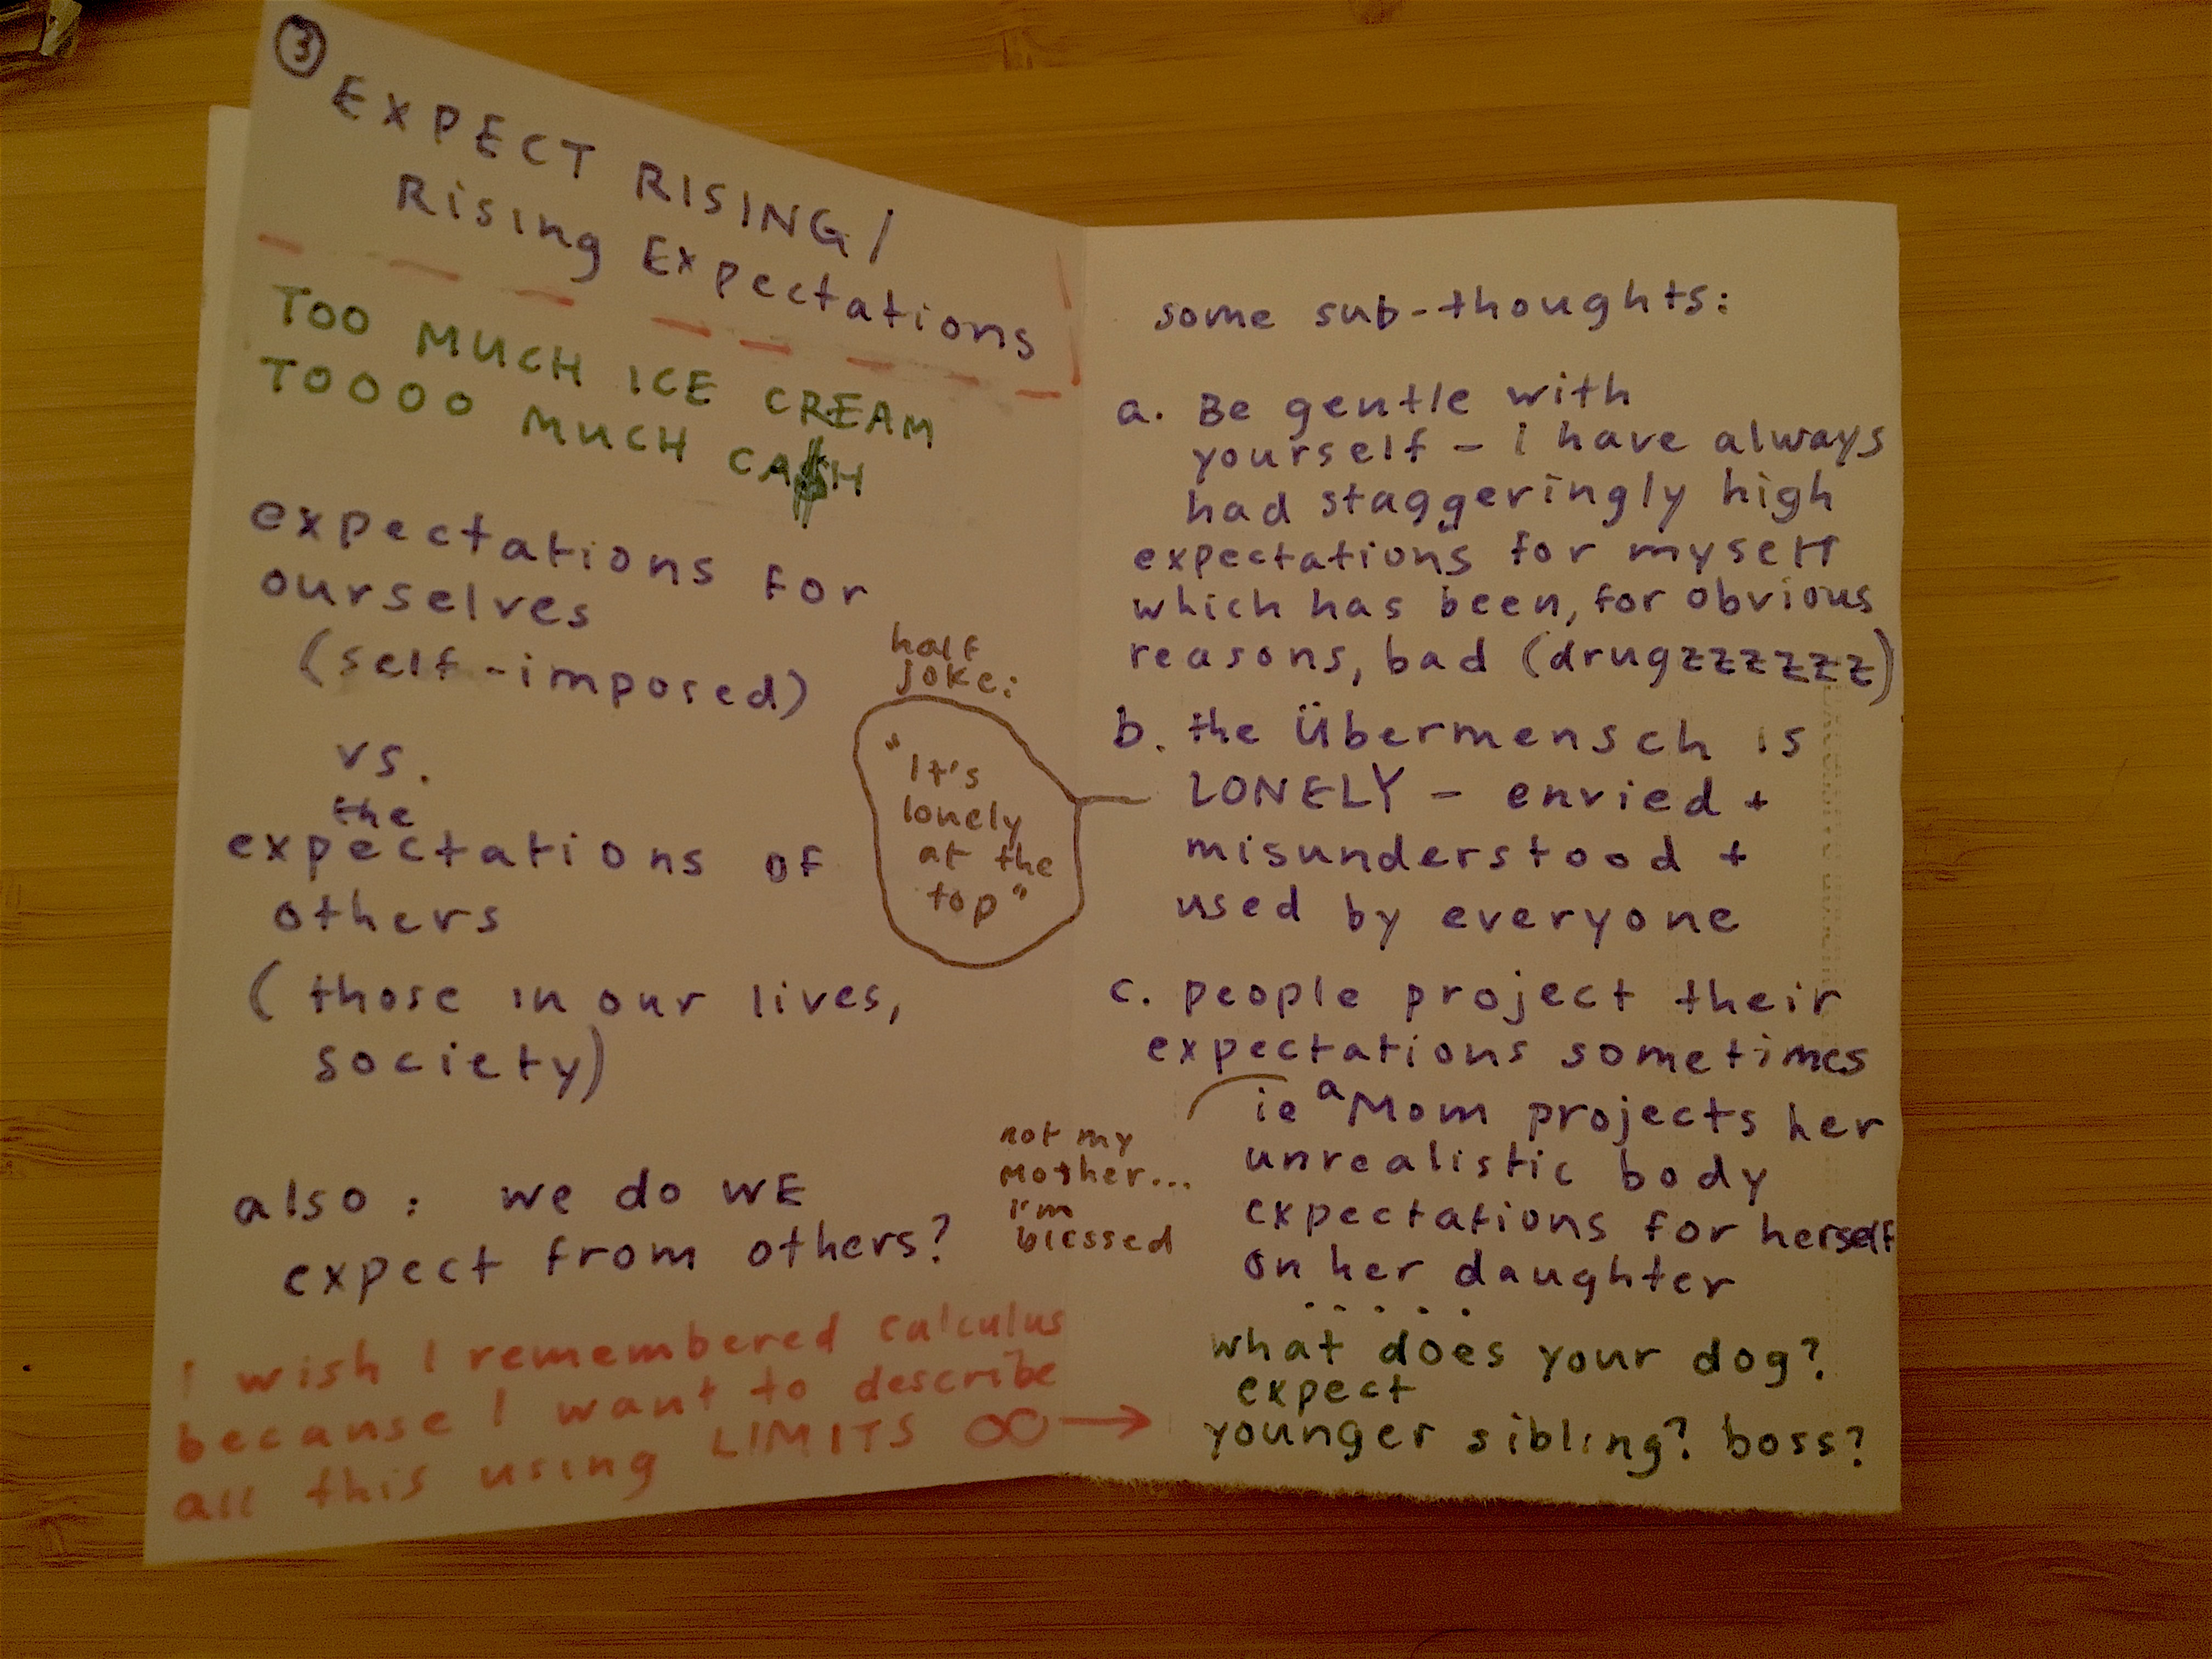 3
EXPECT RISING/
Rising Expectations
TOO MUCH ICE CREAM
TOOOO MUCH CA$H
expectations for
ourselves
(self-imposed)
vs.
the
expectations of
others
(those in our lives,
society)
also: we do WE
expect from others?
I wish I remembered calculus
because I want to describe
all this using LIMITS ∞→
half
joke:
"It's
lonely
at the
top"
not my
mother...
i'm
blessed
some sub-thoughts:
a. Be gentle with
yourself - i have always
had staggeringly high
expectations for myself
which has been, for obvious
reasons, bad (drugzzzzzz)
b. the Übermensch is
LONELY - envied +
misunderstood +
used by everyone
c. people project their
expectations sometimes
ie a Mom projects her
unrealistic body
expectations for herself
on her daughter
.....
what does your dog?
expect
younger sibling? boss?